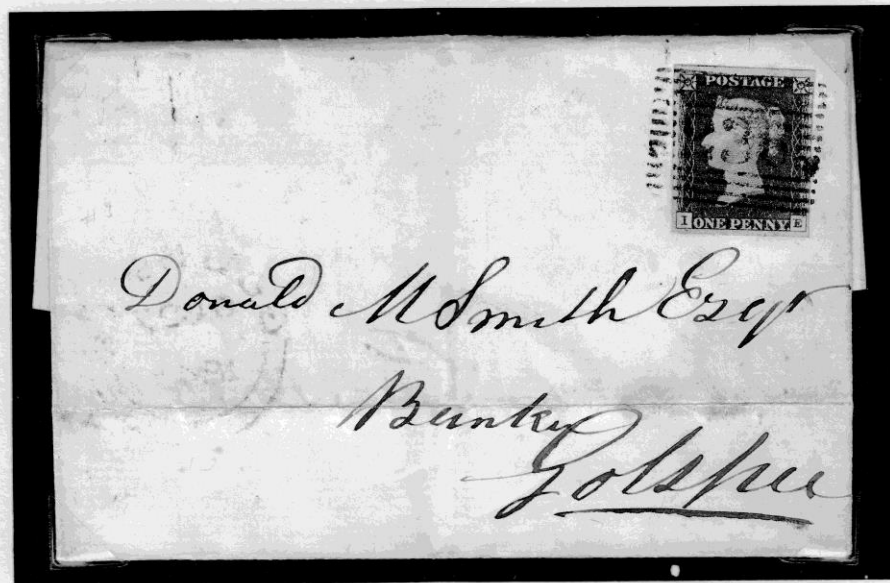 POSTAGE
I ONE PENNY E
Donald M Smith Esqr
Banker
Golspie